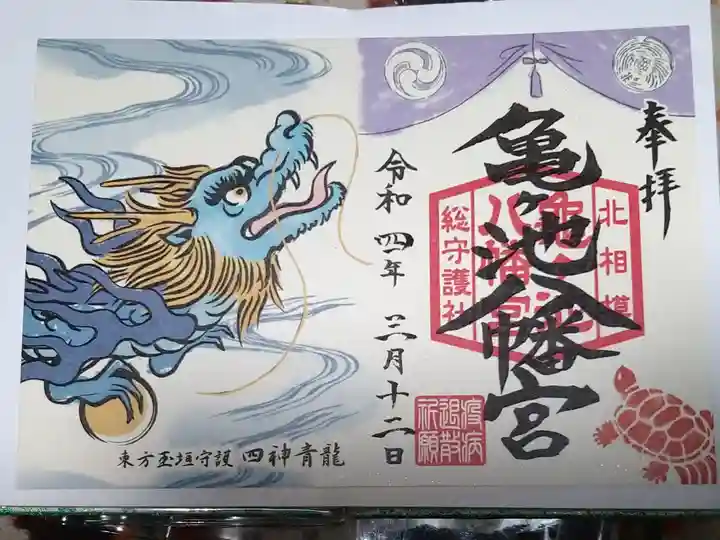 奉拝
亀ヶ池八幡宮
北相模
総守護社
疫病
退散
祈願
令和四年三月十二日
東方玉垣守護 四神青龍